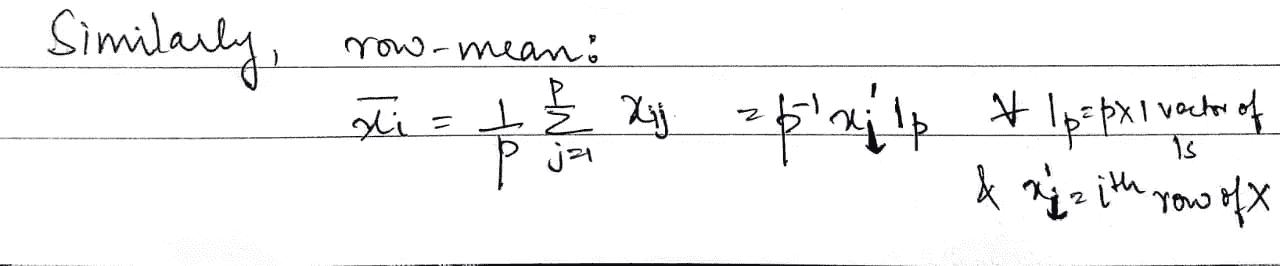 Similarly, row-mean:
x̄i = 1/p Σ_{j=1}^{p} xij = p⁻¹ xi' 1p ∀ 1p = p×1 vector of 1s
& xi' = ith row of X